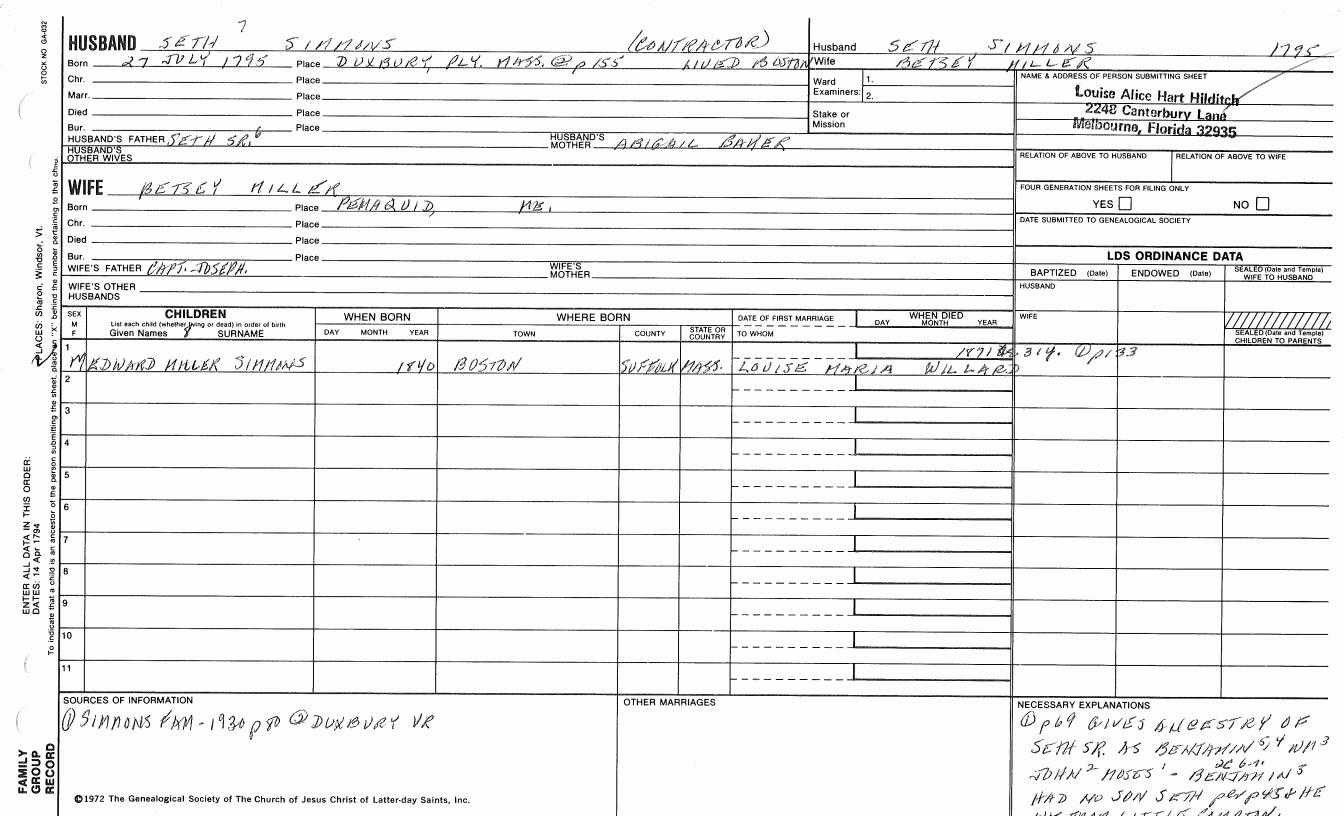 STOCK NO. GA-032
7
HUSBAND SETH SIMMONS (CONTRACTOR)
Born 27 JULY 1795 Place DUXBURY, PLY. MASS. @ p 155 LIVED BOSTON
Chr. Place
Marr. Place
Died Place
Bur. Place
HUSBAND'S FATHER SETH SR.6 HUSBAND'S MOTHER ABIGAIL BAKER
HUSBAND'S OTHER WIVES
Husband SETH SIMMONS 1795
Wife BETSEY MILLER
Ward Examiners: 1.
2.
Stake or Mission
NAME & ADDRESS OF PERSON SUBMITTING SHEET
Louise Alice Hart Hilditch
2248 Canterbury Lane
Melbourne, Florida 32935
RELATION OF ABOVE TO HUSBAND RELATION OF ABOVE TO WIFE
FOUR GENERATION SHEETS FOR FILING ONLY
YES NO
DATE SUBMITTED TO GENEALOGICAL SOCIETY
WIFE BETSEY MILLER
Born Place PEMAQUID, ME.
Chr. Place
Died Place
Bur. Place
WIFE'S FATHER CAPT. JOSEPH. WIFE'S MOTHER
WIFE'S OTHER HUSBANDS
LDS ORDINANCE DATA
BAPTIZED (Date) ENDOWED (Date) SEALED (Date and Temple) WIFE TO HUSBAND
HUSBAND
WIFE
SEALED (Date and Temple) CHILDREN TO PARENTS
SEX M F
CHILDREN
List each child (whether living or dead) in order of birth
Given Names 8 SURNAME
WHEN BORN
DAY MONTH YEAR
WHERE BORN
TOWN COUNTY STATE OR COUNTRY
DATE OF FIRST MARRIAGE
TO WHOM
WHEN DIED
DAY MONTH YEAR
1 1871 314. ① p133
M EDWARD MILLER SIMMONS 1840 BOSTON SUFFOLK MASS. LOUISE MARIA WILLARD
2
3
4
5
6
7
8
9
10
11
SOURCES OF INFORMATION
① SIMMONS FAM - 1930 p 80 ② DUXBURY VR
OTHER MARRIAGES
NECESSARY EXPLANATIONS
① p 69 GIVES ANCESTRY OF
SETH SR. AS BENJAMIN 5,4 WM 3
JOHN 2 MOSES 1 - BENJAMIN 5
HAD NO SON SETH per p 45 & HE
©1972 The Genealogical Society of The Church of Jesus Christ of Latter-day Saints, Inc.
PLACES: Sharon, Windsor, Vt.
ENTER ALL DATA IN THIS ORDER:
DATES: 14 Apr 1794
To indicate that a child is an ancestor of the person submitting the sheet, place an "X" behind the number pertaining to that child.
FAMILY
GROUP
RECORD